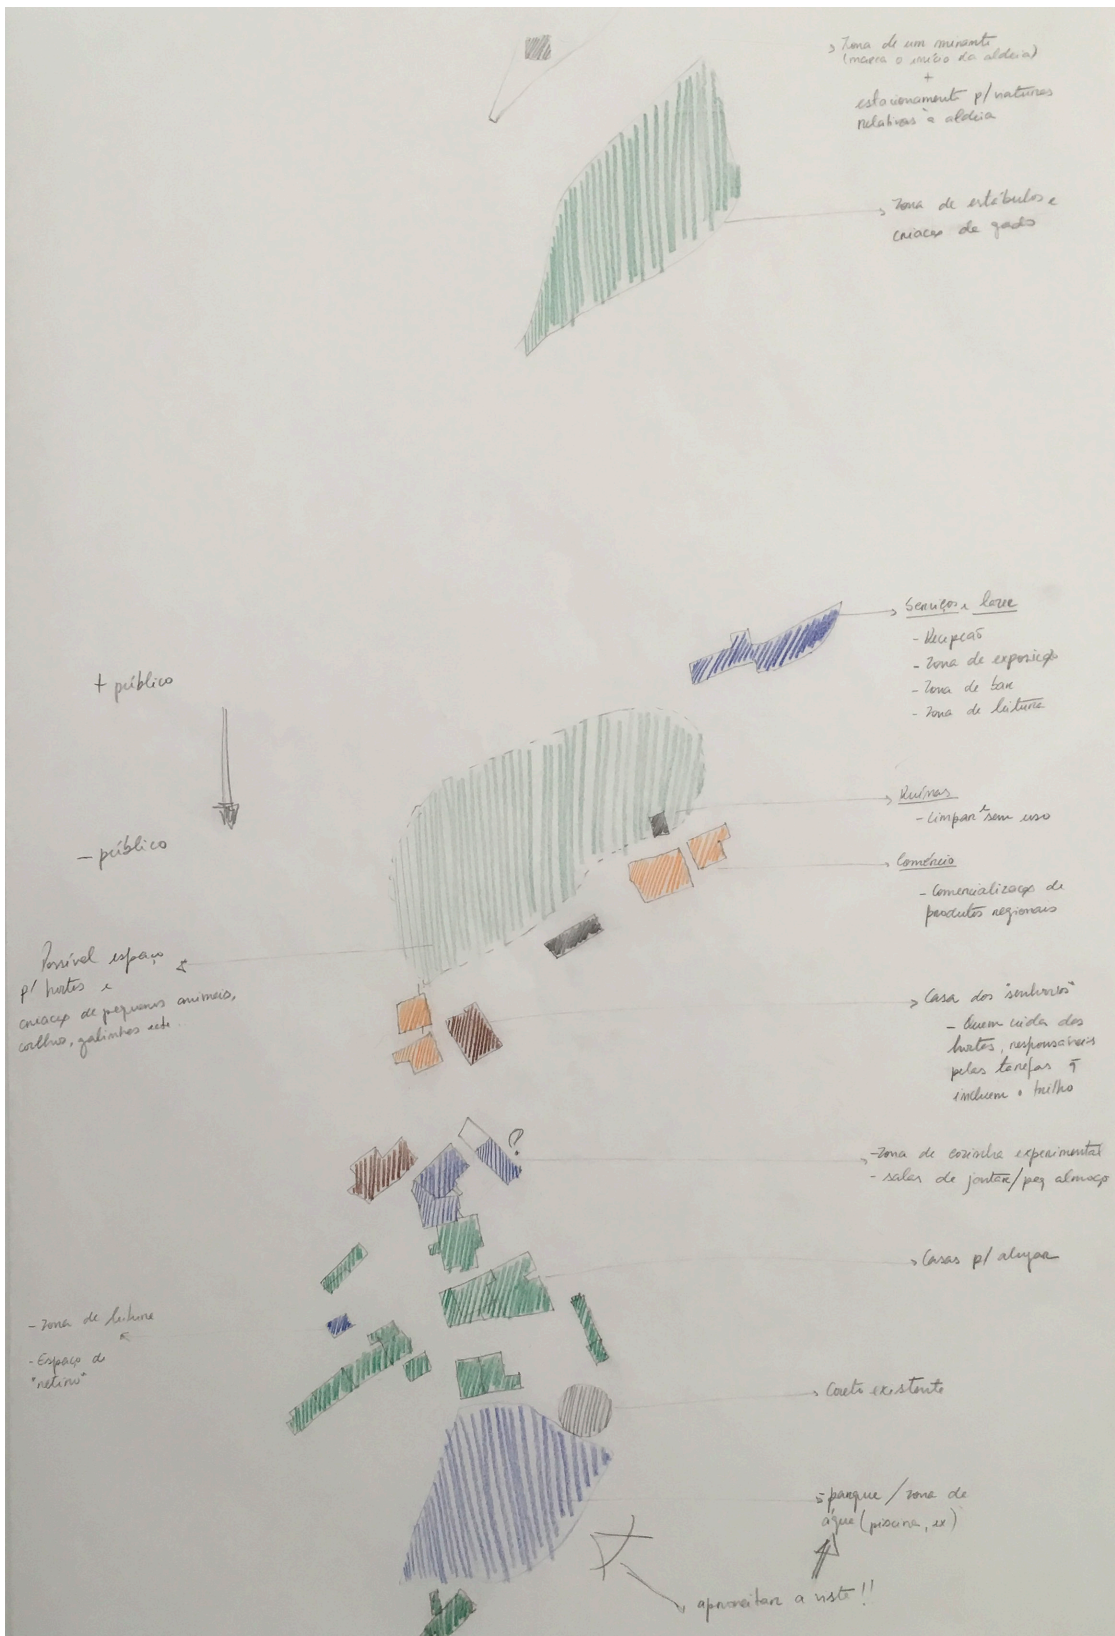 Zona de um mirante
(marca o início da aldeia)
+
estacionamento p/
relativas à aldeia
Zona de estábulos e
criação de gado
Serviços e lazer
- Recepção
- Zona de exposição
- Zona de bar
- Zona de leitura
+ público
- público
Ruínas
- Limpar e sem uso
Comércio
- Comercialização de
produtos regionais
Possível espaço
p/ hortas e
criação de pequenos animais,
coelho, galinhas
Casa dos "senhorios"
- Quem cuida das
hortas, responsáveis
pelas tarefas q̃
incluem o trilho
?
- Zona de cozinha experimental
- salas de jantar/peq almoço
Casas p/ alugar
- Zona de leitura
- Espaço de
"retiro"
Coreto existente
parque / zona de
água (piscina, ex)
aproveitar a vista!!